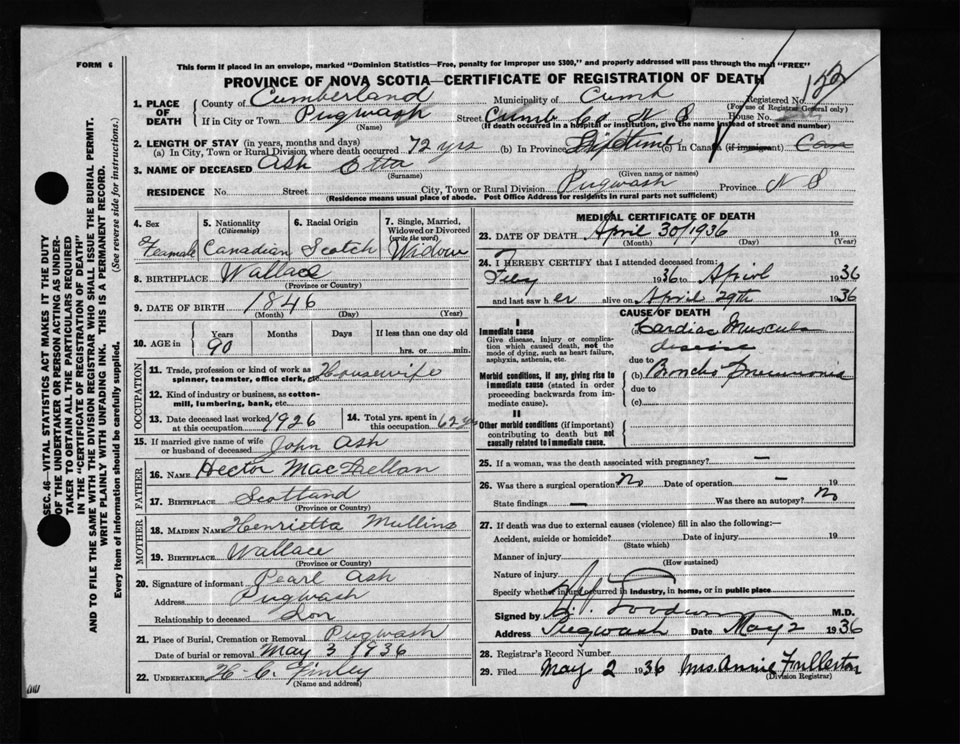 FORM 6
This form if placed in an envelope, marked "Dominion Statistics—Free, penalty for improper use $300," and properly addressed will pass through the mail "FREE"
PROVINCE OF NOVA SCOTIA—CERTIFICATE OF REGISTRATION OF DEATH
Registered No.
(For use of Registrar General only)
1. PLACE OF DEATH
County of Cumberland Municipality of Cumb
If in City or Town Pugwash Street Cumb Co N S House No.
(Name) (If death occurred in a hospital or institution, give the name instead of street and number)
2. LENGTH OF STAY (in years, months and days)
(a) In City, Town or Rural Division where death occurred 72 yrs (b) In Province Lifetime (c) In Canada (if immigrant) Can
3. NAME OF DECEASED Ash Etta
(Surname) (Given name or names)
RESIDENCE No. Street City, Town or Rural Division Pugwash Province N S
(Residence means usual place of abode. Post Office Address for residents in rural parts not sufficient)
4. Sex
Feamale
5. Nationality
(Citizenship)
Canadian
6. Racial Origin
Scotch
7. Single, Married, Widowed or Divorced
(write the word)
Widow
8. BIRTHPLACE Wallace
(Province or Country)
9. DATE OF BIRTH 1846
(Month) (Day) (Year)
10. AGE in
Years Months Days If less than one day old
90 hrs. or min.
OCCUPATION
11. Trade, profession or kind of work as spinner, teamster, office clerk, Housewife
12. Kind of industry or business, as cotton-mill, lumbering, bank, etc.
13. Date deceased last worked at this occupation 1926
14. Total yrs. spent in this occupation 62 yrs
15. If married give name of wife or husband of deceased John Ash
FATHER
16. NAME Hector MacLellan
17. BIRTHPLACE Scotland
(Province or Country)
MOTHER
18. MAIDEN NAME Henrietta Mullins
19. BIRTHPLACE Wallace
(Province or Country)
20. Signature of informant Pearl Ash
Address Pugwash
Relationship to deceased Son
21. Place of Burial, Cremation or Removal Pugwash
Date of burial or removal May 3 1936
22. UNDERTAKER H. C. Finley
(Name and address)
MEDICAL CERTIFICATE OF DEATH
23. DATE OF DEATH April 30/1936 19
(Month) (Day) (Year)
24. I HEREBY CERTIFY that I attended deceased from:
Feby 1936 to April 1936
and last saw her alive on April 29th 1936
CAUSE OF DEATH
I
Immediate cause
Give disease, injury or complication which caused death, not the mode of dying, such as heart failure, asphyxia, asthenia, etc.
(a) Cardiac Muscula
disease
due to
Morbid conditions, if any, giving rise to immediate cause (stated in order proceeding backwards from immediate cause).
(b) Broncho Pneumonia
due to
(c)
II
Other morbid conditions (if important) contributing to death but not causally related to immediate cause.
25. If a woman, was the death associated with pregnancy? —
26. Was there a surgical operation? No Date of operation — 19
State findings — Was there an autopsy? No
27. If death was due to external causes (violence) fill in also the following:—
Accident, suicide or homicide? Date of injury 19
(State which)
Manner of injury
(How sustained)
Nature of injury
Specify whether injury occurred in industry, in home, or in public place
Signed by M.D.
Address Pugwash Date May 2 1936
28. Registrar's Record Number
29. Filed May 2 1936 Mrs. Annie Fullerton
(Division Registrar)
SEC. 46—VITAL STATISTICS ACT MAKES IT THE DUTY
OF THE UNDERTAKER OR PERSON ACTING AS UNDER-
TAKER TO OBTAIN ALL THE PARTICULARS REQUIRED
IN THE "CERTIFICATE OF REGISTRATION OF DEATH"
AND TO FILE THE SAME WITH THE DIVISION REGISTRAR WHO SHALL ISSUE THE BURIAL PERMIT.
WRITE PLAINLY WITH UNFADING INK. THIS IS A PERMANENT RECORD.
Every item of information should be carefully supplied. (See reverse side for instructions.)